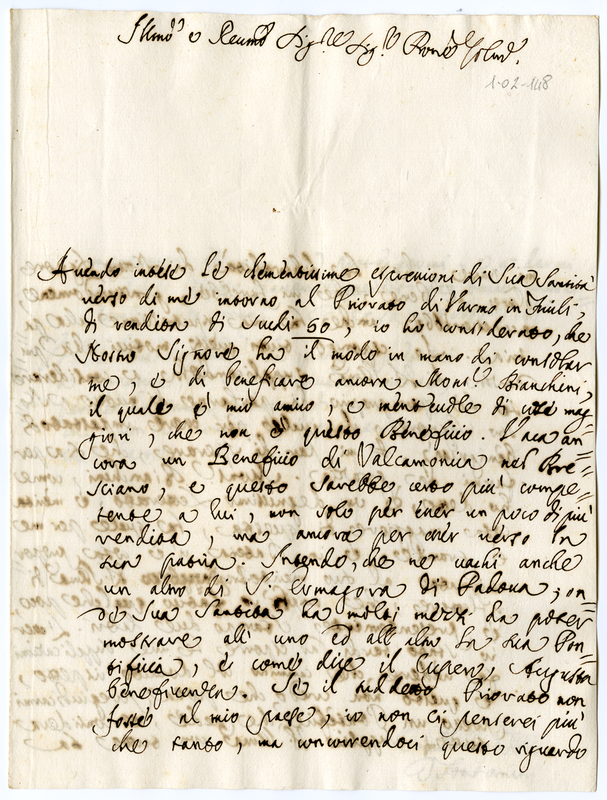 Illmo e Reumo Sig.re Sig.r Pron Colmo
1-02-148
Auendo inteso le clementissime espressioni di Sua Santità
verso di me intorno al Priorato di Varmo in Friuli,
di rendita di Scudi 60, io ho considerato, che
Nostro Signore ha il modo in mano di consolar
me, e di beneficare ancora Mons.r Bianchini,
il quale è mio amico, e meriteuole di cose mag=
giori, che non è questo Beneficio. Vaca an=
cora un Beneficio di Valcamonica nel Bre=
sciano, e questo sarebbe certo più compe=
tente a lui, non solo per esser un poco di più
rendita, ma ancora per esser verso la
sua patria. Intendo, che ne uachi anche
un altro di S. Ermagora di Padoua; on=
de Sua Santità ha molti mezzi da poter
mostrare all' uno ed all' altro la sua Pon=
tificia, e come dice il Cupero, Augusta
beneficenza. Se il suddetto Priorato non
fosse al mio paese, io non ci penserei più
che tanto, ma concorrendoci questo riguardo